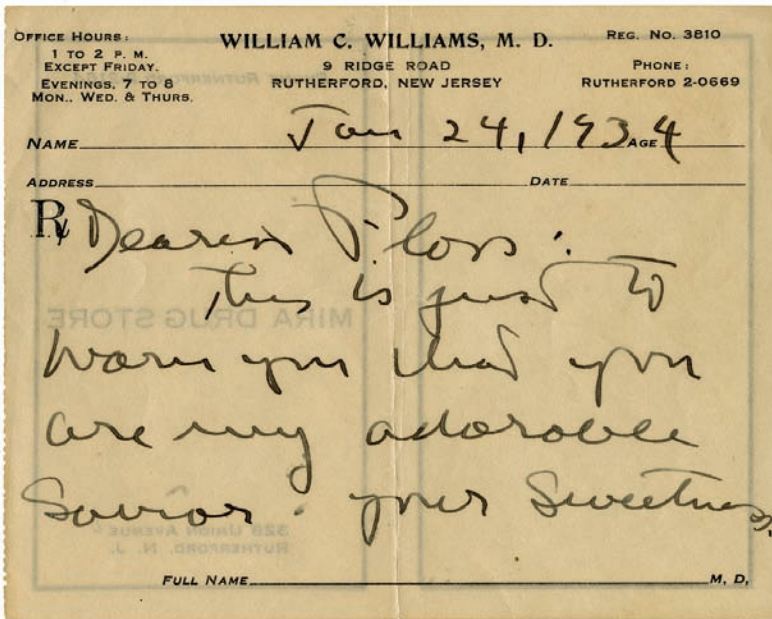 OFFICE HOURS:
1 TO 2 P. M.
EXCEPT FRIDAY.
EVENINGS, 7 TO 8
MON., WED. & THURS.
WILLIAM C. WILLIAMS, M. D.
9 RIDGE ROAD
RUTHERFORD, NEW JERSEY
REG. NO. 3810
PHONE:
RUTHERFORD 2-0669
NAME Jan 24, 1934 AGE
ADDRESS DATE
℞ Dearest Floss:
This is just to
warn you that you
are my adorable
Savior: your sweetness,
FULL NAME M. D.
MIRA DRUG STORE
328 UNION AVENUE
RUTHERFORD, N. J.